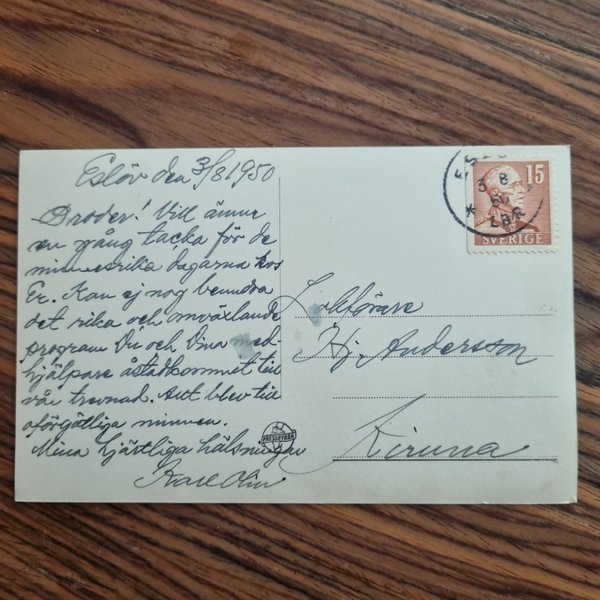 Eslöv den 3/8 1950
Broder! Vill ännu
en gång tacka för de
minnesrika dagarna hos
Er. Kan ej nog beundra
det rika och omväxlande
program Du och Dina med-
hjälpare åstadkommet till
vår trevnad. Allt blev till
oförgätliga minnen.
Mina hjärtliga hälsningar
Karl Olin
15
SVERIGE
3 8
50
LBR
Lokförare
Hj. Anderson
Kiruna
PRESSBYRÅN